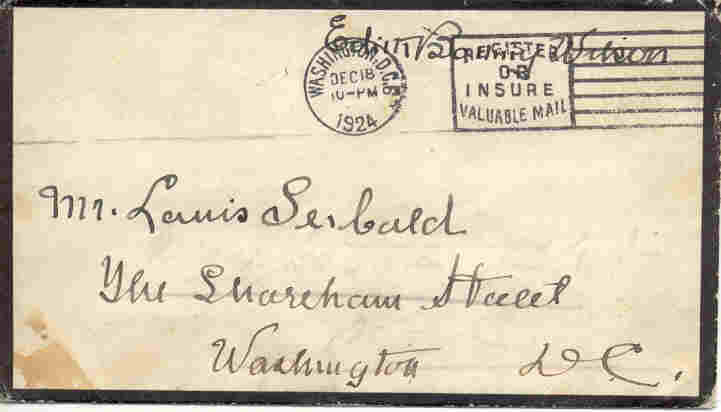 Edith Bolling Wilson
WASHINGTON, D.C.
DEC 18
10-PM
1924
REGISTER
OR
INSURE
VALUABLE MAIL
Mr. Louis Seibold
The Shoreham
Washington D.C.